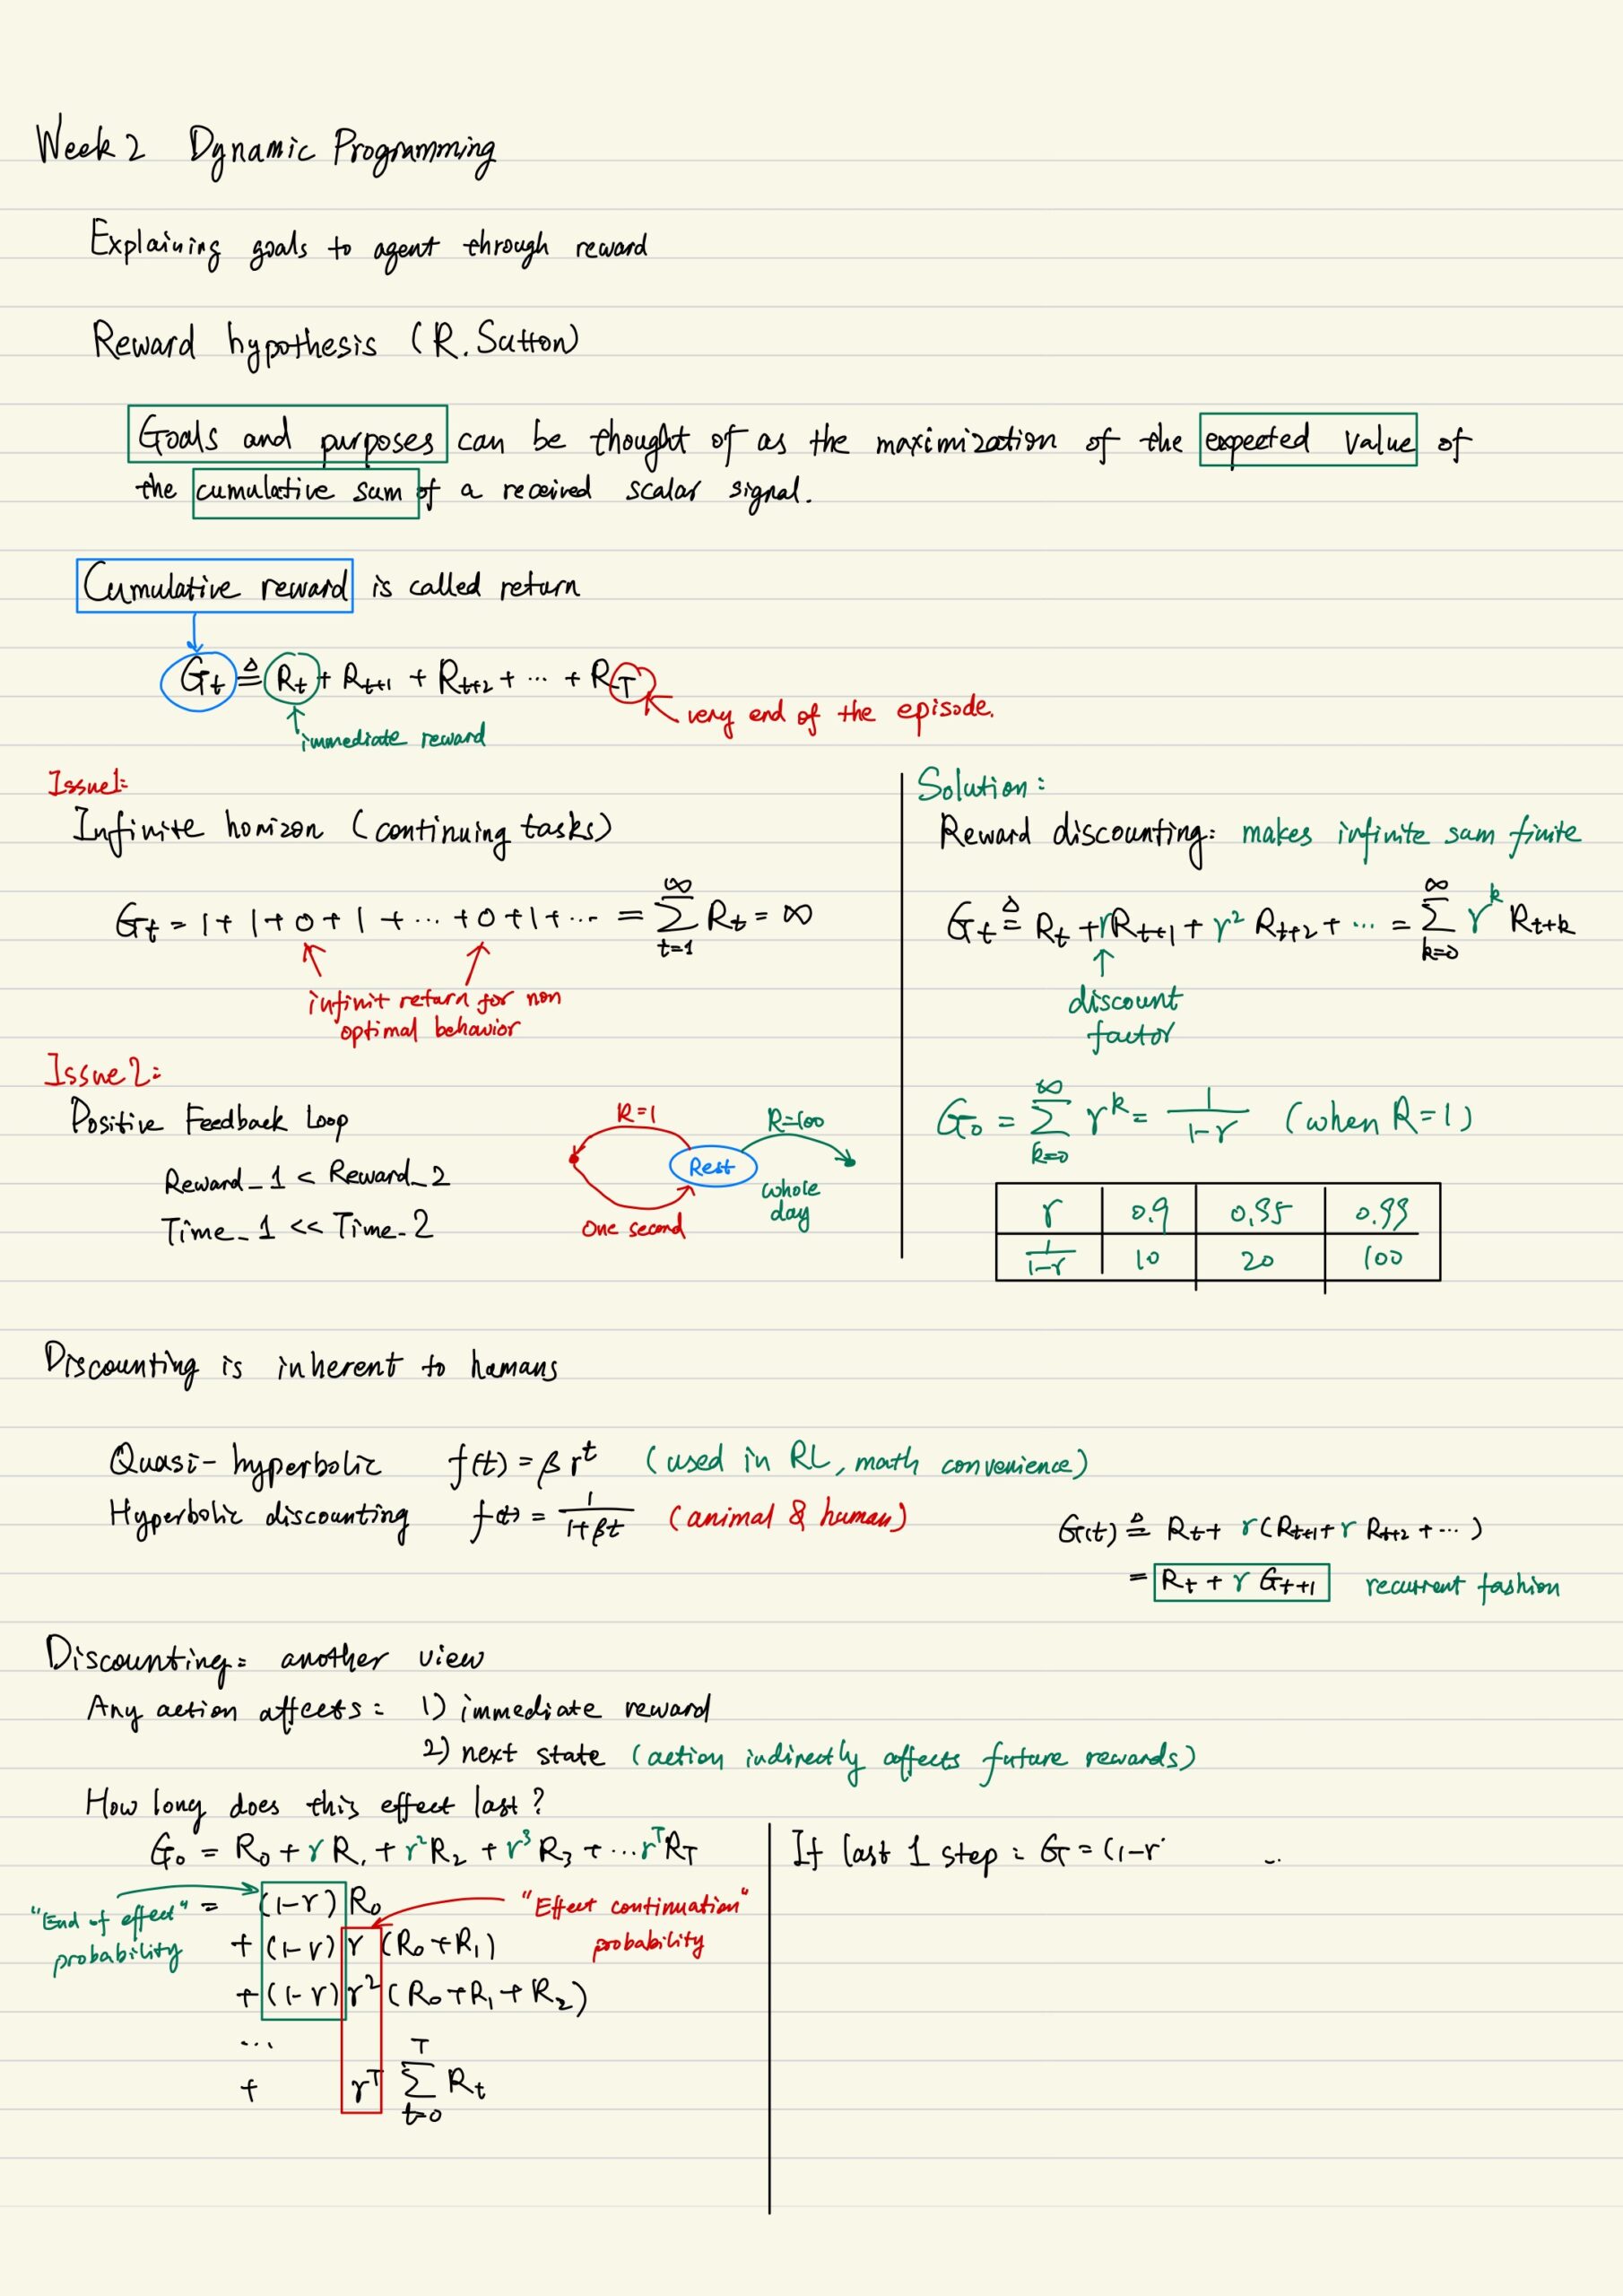 Week 2 Dynamic Programming
Explaining goals to agent through reward
Reward hypothesis (R. Sutton)
Goals and purposes can be thought of as the maximization of the expected value of
the cumulative sum of a received scalar signal.
Cumulative reward is called return
G_t ≜ R_t + R_{t+1} + R_{t+2} + ... + R_T
very end of the episode.
immediate reward
Issue1:
Infinite horizon (continuing tasks)
G_t = 1 + 1 + 0 + 1 + ... + 0 + 1 + ... = ∑_{t=1}^{∞} R_t = ∞
infinit return for non
optimal behavior
Issue2:
Positive Feedback Loop
Reward_1 < Reward_2
Time_1 << Time_2
R=1
R=100
Rest
whole
day
One second
Solution:
Reward discounting: makes infinite sum finite
G_t ≜ R_t + γR_{t+1} + γ² R_{t+2} + ... = ∑_{k=0}^{∞} γ^k R_{t+k}
discount
factor
G_0 = ∑_{k=0}^{∞} γ^k = 1/(1-γ) (when R=1)
γ 0.9 0.95 0.99
1/(1-γ) 10 20 100
Discounting is inherent to humans
Quasi-hyperbolic f(t) = β γ^t (used in RL, math convenience)
Hyperbolic discounting f(t) = 1/(1+βt) (animal & human)
G(t) ≜ R_t + γ(R_{t+1} + γ R_{t+2} + ...)
= R_t + γ G_{t+1} recurrent fashion
Discounting: another view
Any action affects: 1) immediate reward
2) next state (action indirectly affects future rewards)
How long does this effect last?
G_0 = R_0 + γ R_1 + γ² R_2 + γ³ R_3 + ... γ^T R_T
"End of effect"
probability
= (1-γ) R_0
+ (1-γ) γ (R_0 + R_1)
+ (1-γ) γ² (R_0 + R_1 + R_2)
...
+ γ^T ∑_{t=0}^{T} R_t
"Effect continuation"
probability
If last 1 step: G = (1-γ ...